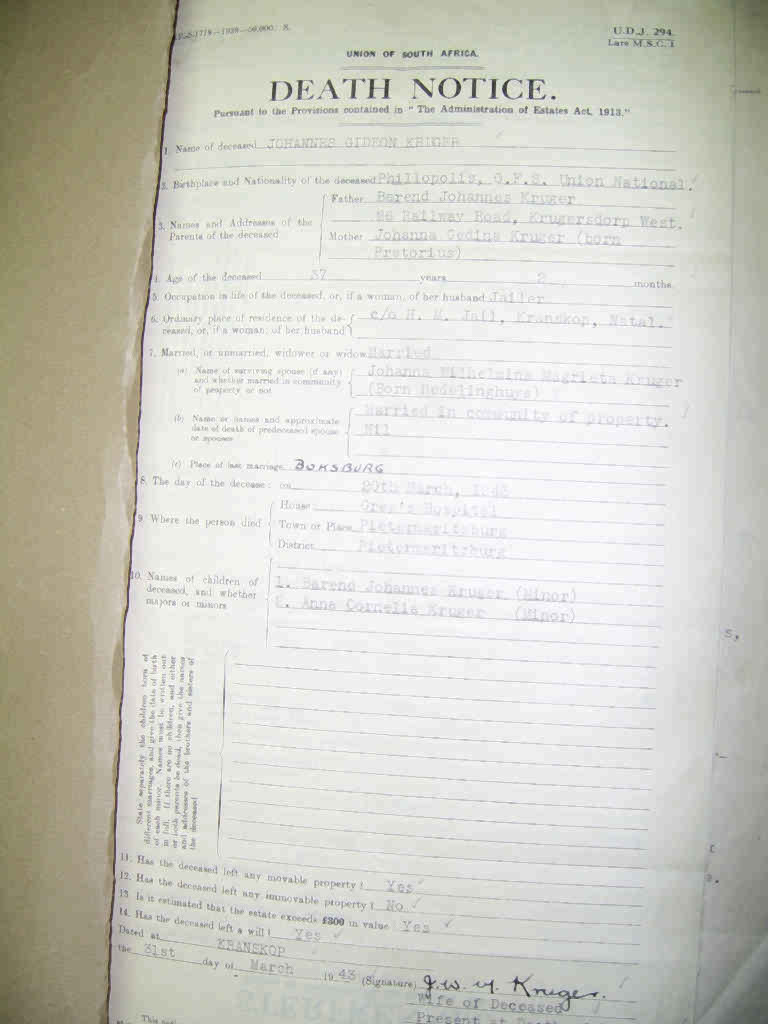 U.D.J. 294.
Late M.S.C. 1
UNION OF SOUTH AFRICA.
DEATH NOTICE.
Pursuant to the Provisions contained in "The Administration of Estates Act, 1913."
1. Name of deceased JOHANNES GIDEON KRUGER
2. Birthplace and Nationality of the deceased Phillopolis, O.F.S. Union National.
3. Names and Addresses of the Parents of the deceased
Father Barend Johannes Kruger
86 Railway Road, Krugersdorp West.
Mother Johanna Gedina Kruger (born
Pretorius)
4. Age of the deceased 37 years 2 months.
5. Occupation in life of the deceased, or, if a woman, of her husband Jailer
6. Ordinary place of residence of the de-
ceased, or, if a woman, of her husband
c/o H. M. Jail, Kranskop, Natal.
7. Married, or unmarried, widower or widow Married
(a) Name of surviving spouse (if any)
and whether married in community
of property or not
Johanna Wilhelmina Magrieta Kruger
(Born Redelinghuys)
Married in community of property.
(b) Name or names and approximate
date of death of predeceased spouse
or spouses
Nil
(c) Place of last marriage BOKSBURG
8. The day of the decease: on 20th March, 1943
9. Where the person died
House Grey's Hospital
Town or Place Pietermaritzburg
District Pietermaritzburg
10. Names of children of
deceased, and whether
majors or minors
1. Barend Johannes Kruger (Minor)
2. Anna Cornelia Kruger (Minor)
State separately the children born of
different marriages, and give the date of birth
of each minor. Names must be written out
in full. If there are no children, and either
or both parents be dead, then give the names
and addresses of the brothers and sisters of
the deceased
11. Has the deceased left any movable property? Yes
12. Has the deceased left any immovable property? No
13. Is it estimated that the estate exceeds £300 in value? Yes
14. Has the deceased left a will? Yes
Dated at KRANSKOP
the 31st day of March 1943 (Signature) J.W.M. Kruger.
Wife of Deceased
Present at Death